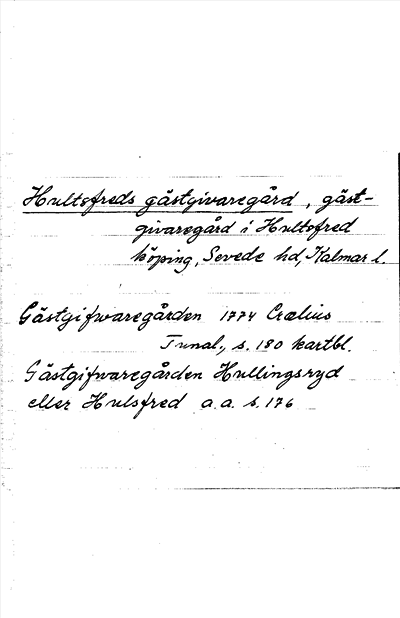 Hultsfreds gästgivaregård, gäst-
givaregård i Hultsfred
köping, Sevede hd, Kalmar l.
Gästgifwaregården 1774 Crælius
Tunal., s. 180 kartbl.
Gästgifwaregården Hullingsryd
eller Hulsfred a.a. s. 176